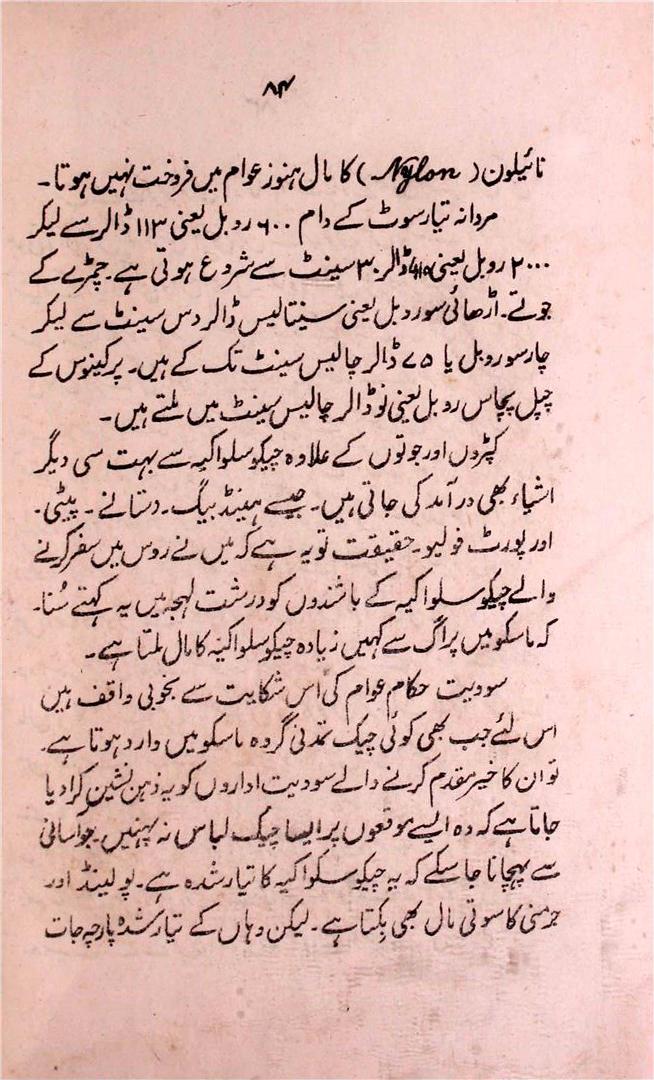 ۸۴
نائیلون (Nylon) کا مال ہنوز عوام میں فروخت نہیں ہوتا۔
مردانہ تیار سوٹ کے دام ۶۰۰ روبل یعنی ۱۱۳ ڈالر سے لیکر
۲۰۰۰ روبل یعنی ڈالر ۳۰ سینٹ سے شروع ہوتی ہے۔ چمڑے کے
جوتے۔ اڑھائی سو روبل یعنی سینتالیس ڈالر دس سینٹ سے لیکر
چار سو روبل یا ۷۵ ڈالر چالیس سینٹ تک کے ہیں۔ پر کینوس کے
چپل پچاس روبل یعنی نو ڈالر چالیس سینٹ میں ملتے ہیں۔
کپڑوں اور جوتوں کے علاوہ چیکو سلواکیہ سے بہت سی دیگر
اشیاء بھی درآمد کی جاتی ہیں۔ جیسے ہینڈ بیگ۔ دستانے۔ پیٹی۔
اور پورٹ فولیو۔ حقیقت تو یہ ہے کہ میں نے روس میں سفر کرنے
والے چیکو سلواکیہ کے باشندوں کو درشت لہجہ میں یہ کہتے سُنا۔
کہ ماسکو میں پراگ سے کہیں زیادہ چیکو سلواکیہ کا مال ملتا ہے۔
سوویت حکام عوام کی اس شکایت سے بخوبی واقف ہیں
اس لئے جب بھی کوئی چیک تمدنی گروہ ماسکو میں وارد ہوتا ہے۔
تو ان کا خیر مقدم کرنے والے سوویت اداروں کو یہ ذہن نشین کرا دیا
جاتا ہے کہ وہ ایسے موقعوں پر ایسا چیک لباس نہ پہنیں۔ جو آسانی
سے پہچانا جا سکے کہ یہ چیکو سکواکیہ کا تیار شدہ ہے۔ پولینڈ اور
جرمنی کا سوتی مال بھی بِکتا ہے۔ لیکن وہاں کے تیار شدہ پارچہ جات